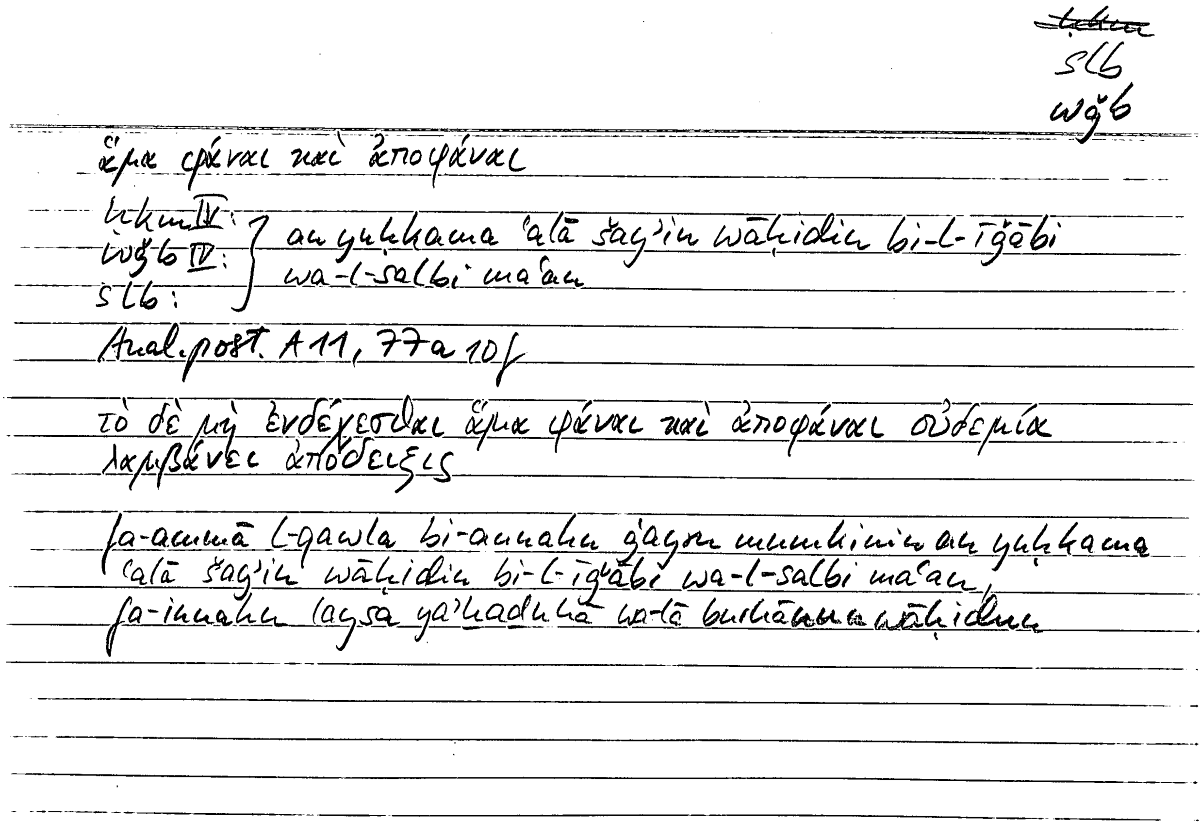 ḥkm
slb
wǧb
ἅμα φάναι καὶ ἀποφάναι
ḥkm IV:
wǧb IV: } an yuḥkama ʿalā šayʾin wāḥidin bi-l-īǧābi
slb: wa-l-salbi maʿan
Anal. post. A 11, 77a 10f
τὸ δὲ μὴ ἐνδέχεσθαι ἅμα φάναι καὶ ἀποφάναι οὐδεμία
λαμβάνει ἀπόδειξις
fa-ammā l-qawla bi-annahu ġayru mumkinin an yuḥkama
ʿalā šayʾin wāḥidin bi-l-īǧābi wa-l-salbi maʿan,
fa-innahu laysa yaʾḫaḏuhā wa-lā burhānun wāḥidun